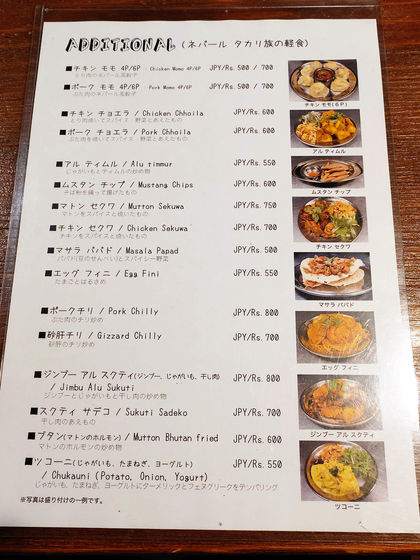 ADDITIONAL (ネパール タカリ族の軽食)
■チキン モモ 4P/6P / Chicken Momo 4P/6P JPY/Rs. 500 / 700
とり肉のネパール風餃子
■ポーク モモ 4P/6P / Pork Momo 4P/6P JPY/Rs. 500 / 700
ぶた肉のネパール風餃子
チキン モモ(6P)
■チキン チョエラ / Chicken Chhoila JPY/Rs. 600
とり肉焼いてスパイス・野菜とあえたもの
■ポーク チョエラ / Pork Chhoila JPY/Rs. 600
ぶた肉を焼いてスパイス・野菜とあえたもの
アル ティムル
■アル ティムル / Alu timmur JPY/Rs. 550
じゃがいもとティムルの炒め物
■ムスタン チップ / Mustang Chips JPY/Rs. 600
そば粉を練って揚げたもの
ムスタン チップ
■マトン セクワ / Mutton Sekuwa JPY/Rs. 750
マトンをスパイスと焼いたもの
■チキン セクワ / Chicken Sekuwa JPY/Rs. 700
チキンをスパイスと焼いたもの
チキン セクワ
■マサラ パパド / Masala Papad JPY/Rs. 500
パパド(豆のせんべい)とスパイシー野菜
■エッグ フィニ / Egg Fini JPY/Rs. 550
たまごとはるさめ
マサラ パパド
■ポークチリ / Pork Chilly JPY/Rs. 800
ぶた肉のチリ炒め
■砂肝チリ / Gizzard Chilly JPY/Rs. 700
砂肝のチリ炒め
エッグ フィニ
■ジンブー アル スクティ(ジンブー、じゃがいも、干し肉) JPY/Rs. 800
/ Jimbu Alu Sukuti
ジンブーとじゃがいもと干し肉の炒め物
■スクティ サデコ / Sukuti Sadeko JPY/Rs. 700
干し肉のあえもの
ジンブー アル スクティ
■ブタン(マトンのホルモン) / Mutton Bhutan fried JPY/Rs. 600
マトンのホルモンの炒め物
■ツコーニ(じゃがいも、たまねぎ、ヨーグルト) JPY/Rs. 550
/ Chukauni (Potato, Onion, Yogurt)
じゃがいも、たまねぎ、ヨーグルトにターメリックとフェヌグリークをテンパリング
ツコーニ
※写真は盛り付けの一例です。